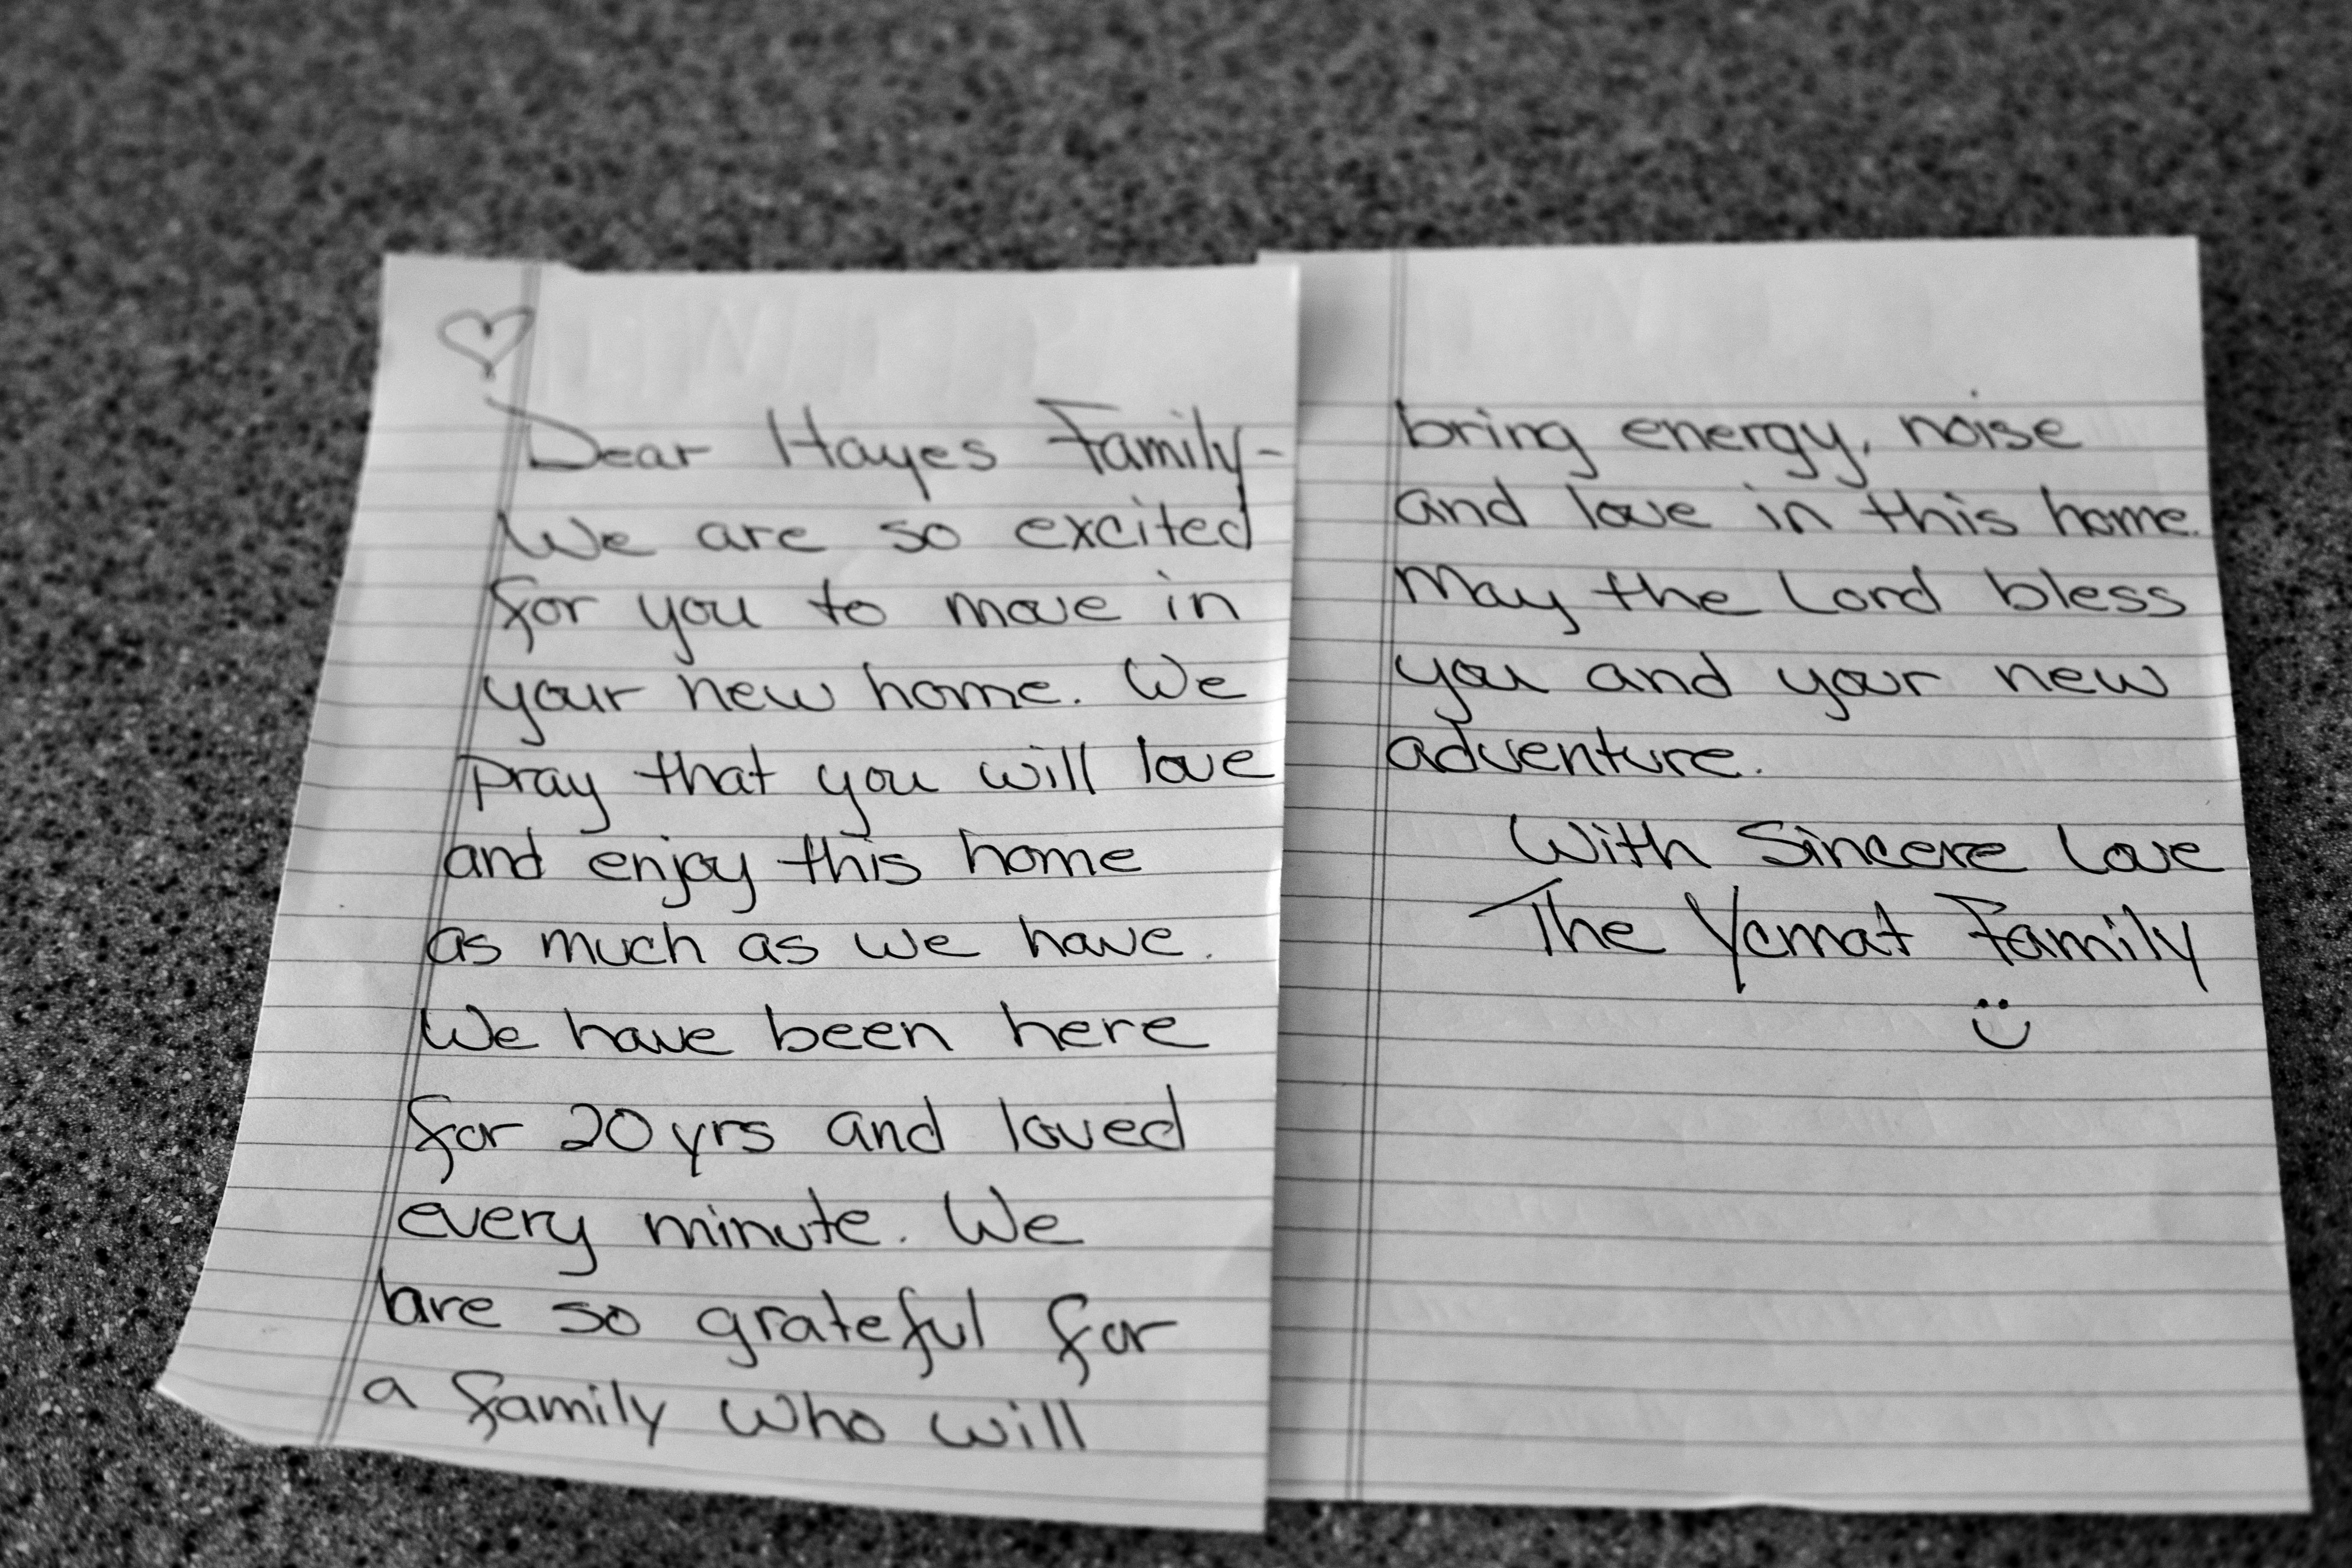 Dear Hayes Family-
We are so excited
for you to move in
your new home. We
pray that you will love
and enjoy this home
as much as we have.
We have been here
for 20 yrs and loved
every minute. We
are so grateful for
a family who will
bring energy, noise
and love in this home.
May the Lord bless
you and your new
adventure.
With Sincere Love
The Yemat Family